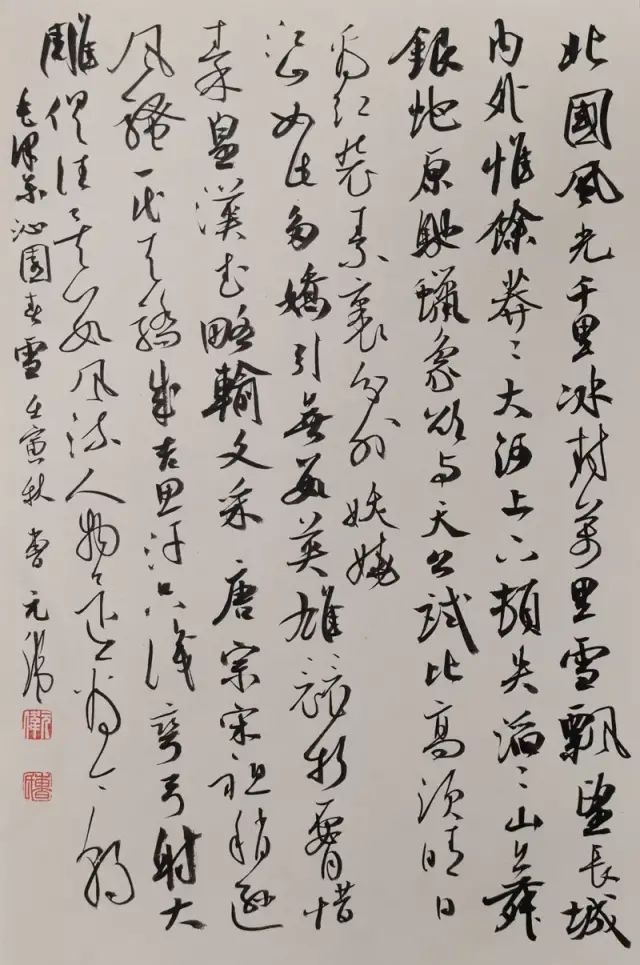 北國風光千里冰封萬里雪飄望長城
内外惟餘莽〻大河上下頓失滔〻山舞
銀蛇原馳蠟象欲与天公試比高須晴日
看红裝素裹分外妖嬈
江山如此多嬌引無數英雄競折腰惜
秦皇漢武略輸文采唐宗宋祖稍遜
風騷一代天驕成吉思汗只識彎弓射大
雕俱往矣數風流人物還看今朝
毛澤東沁園春雪壬寅秋曹元